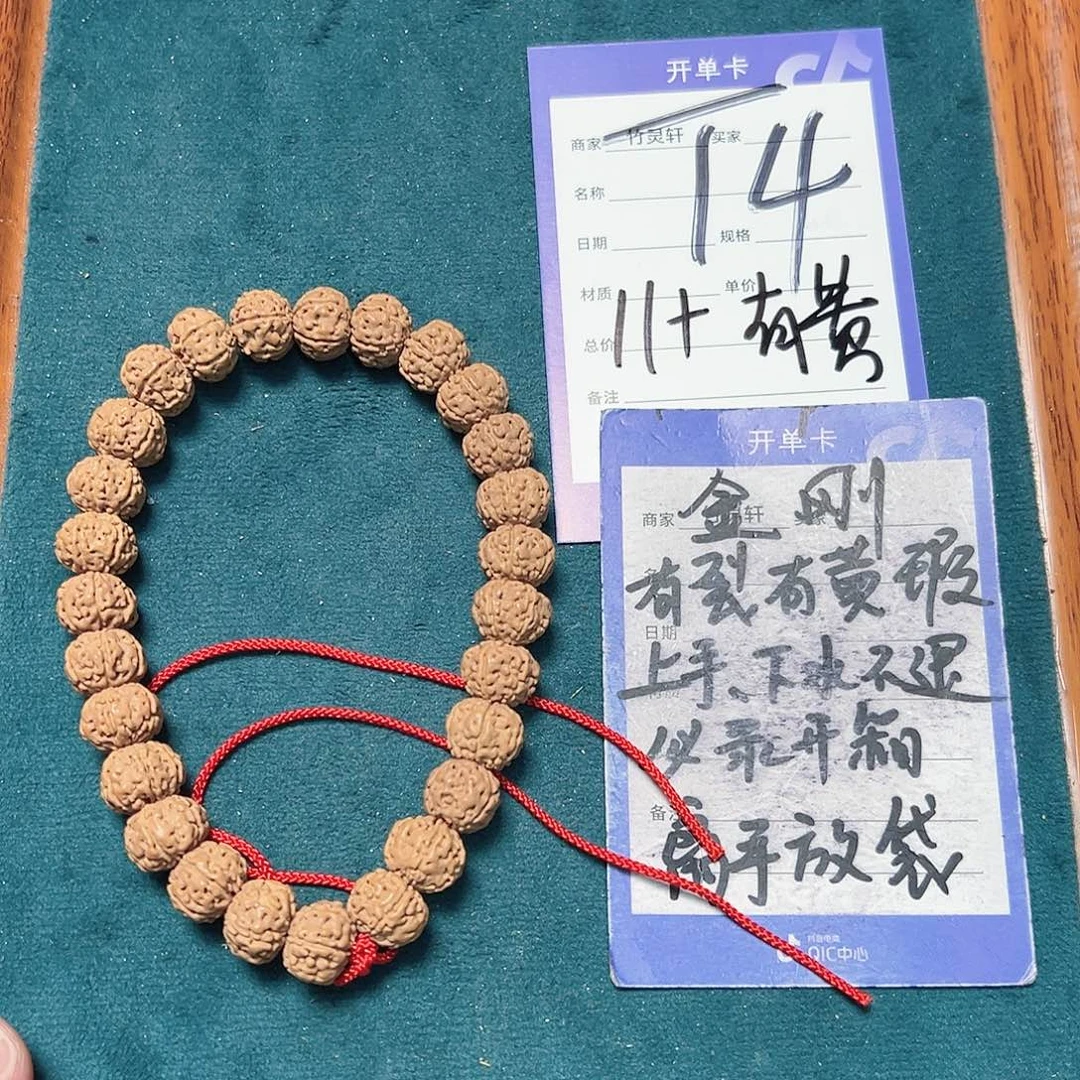 开单卡
商家 竹灵轩 买家
14
名称
日期 规格
材质 单价
11+ 有黄
总价
备注
开单卡
金刚
商家 轩
有裂有黄瑕
日期
上手、下水不退
仪录开箱
备注
扁平放袋
抖音电商
QIC中心